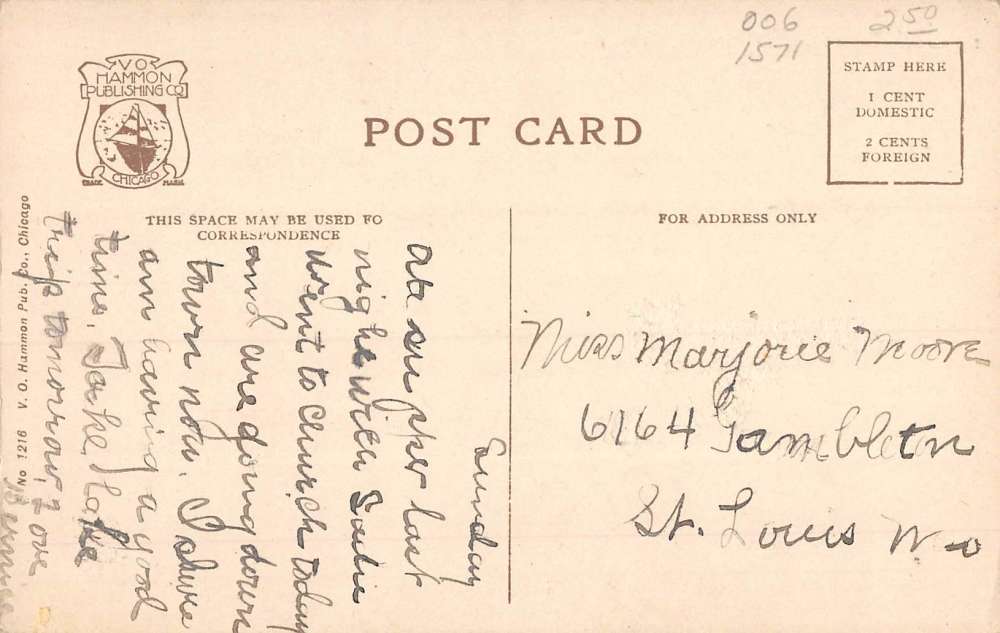 006
1571
2 50
V O
HAMMON
PUBLISHING CO
CHICAGO
TRADE MARK
POST CARD
STAMP HERE
1 CENT
DOMESTIC
2 CENTS
FOREIGN
THIS SPACE MAY BE USED FO
CORRESPONDENCE
FOR ADDRESS ONLY
Sunday
Ate supper last
night with Sadie
went to church today
and are going down
town now. I shure
am having a good
time. Take lake
trip tomorrow, Love
Bernice
No 1216 V. O. Hammon Pub. Co., Chicago
Miss Marjorie Moore
6164 Gambleton
St. Louis Mo